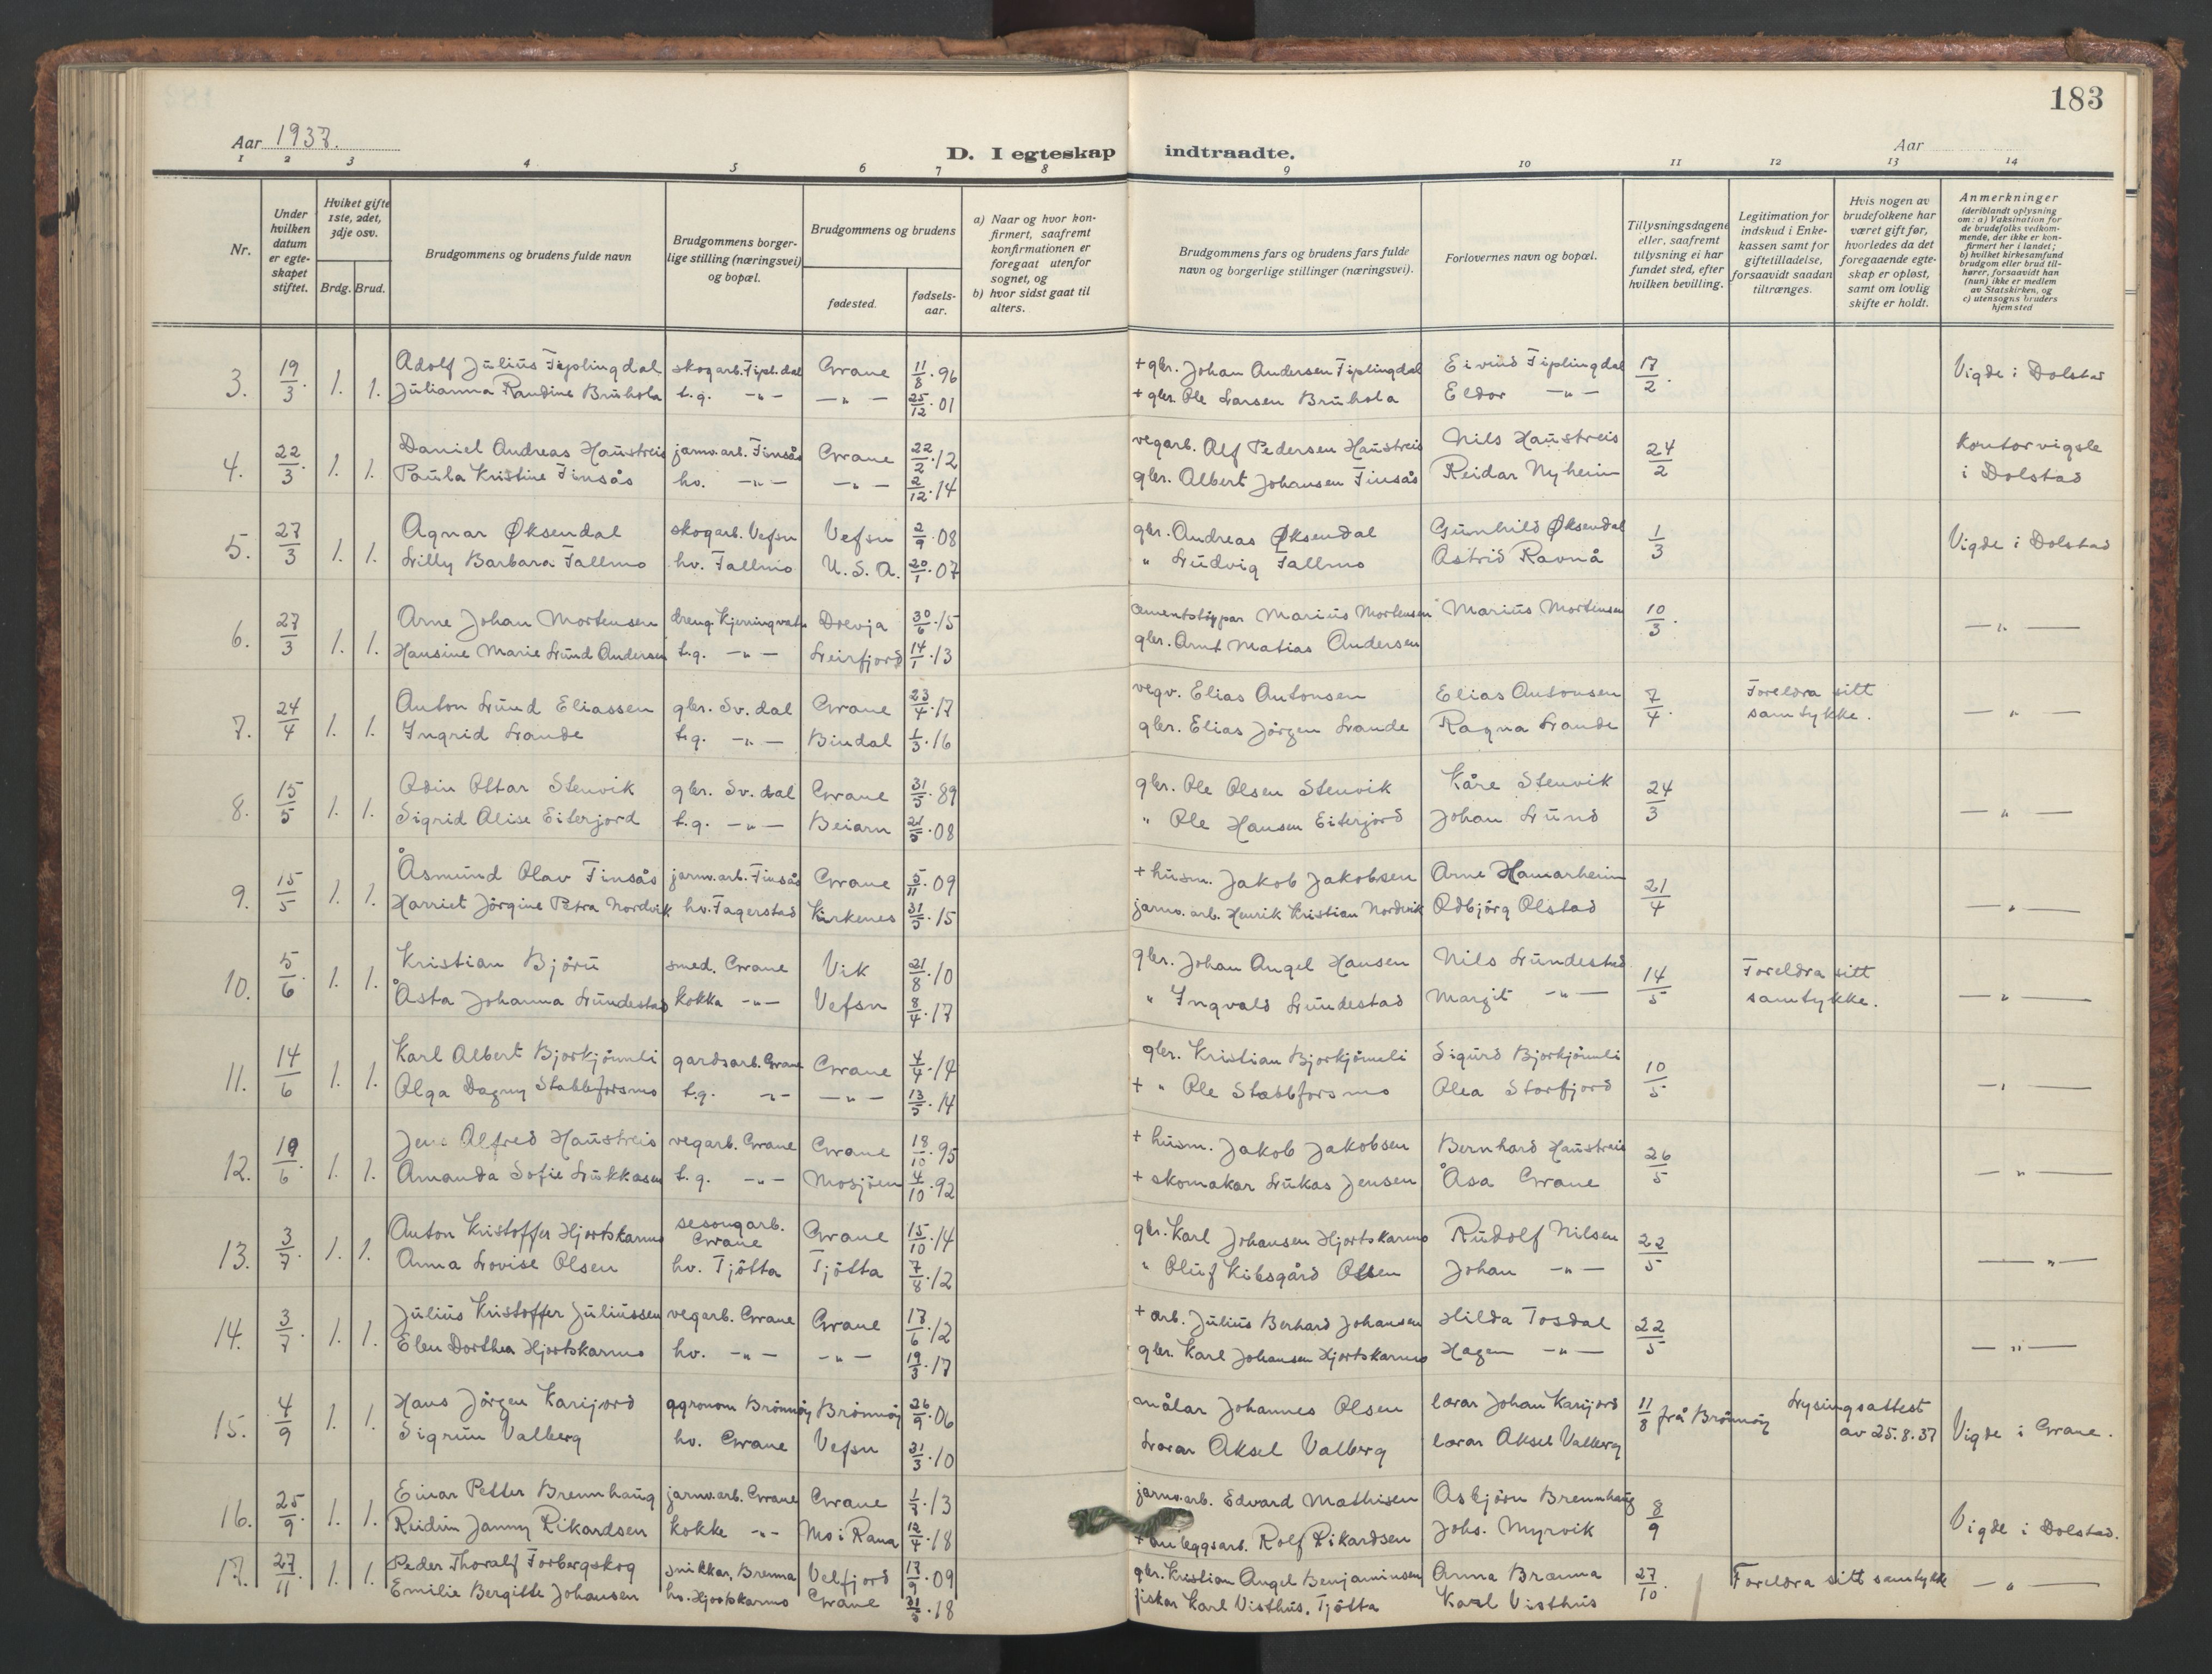 183
Aar 1937.
D. I egteskap indtraadte.
Aar
1 2 3 4 5 6 7 8 9 10 11 12 13 14
Nr.
Under hvilken datum er egte-skapet stiftet.
Hviket gifte 1ste, 2det, 3dje osv.
Brdg. Brud.
Brudgommens og brudens fulde navn
Brudgommens borger-lige stilling (næringsvei) og bopæl.
Brudgommens og brudens
fødested.
fødsels-aar.
a) Naar og hvor kon-firmert, saafremt konfirmationen er foregaat utenfor sognet, og
b) hvor sidst gaat til alters.
Brudgommens fars og brudens fars fulde navn og borgerlige stillinger (næringsvei).
Forlovernes navn og bopæl.
Tillysningsdagene eller, saafremt tillysning ei har fundet sted, efter hvilken bevilling.
Legitimation for indskud i Enke-kassen samt for giftetilladelse, forsaavidt saadan tiltrænges.
Hvis nogen av brudefolkene har været gift før, hvorledes da det foregaaende egte-skap er opløst, samt om lovlig skifte er holdt.
Anmerkninger (deriblandt oplysning om: a) Vaksination for de brudefolks vedkom-mende, der ikke er kon-firmert her i landet; b) hvilket kirkesamfund brudgom eller brud til-hører, forsaavidt han (hun) ikke er medlem av Statskirken, og c) utensogns bruders hjemsted
3. 19/3. 1. 1. Adolf Julius Fiplingdal skogarb. Fipl.dal Grane 11/8.96 + gbr. Johan Andersen Fiplingdal Eivind Fiplingdal 17/2. Vigde i Dolstad
Julianna Randine Bruhola t.g. -"- -"- 25/12.01 + gbr. Ole Larsen Bruhola Eldor -"-
4. 22/3. 1. 1. Daniel Andreas Haustreis jarnv.arb. Finsås Grane 22/2.12 vegarb. Alf Pedersen Haustreis Nils Haustreis 24/2 Kontorvigsle
Paula Kristine Finsås hv. -"- -"- 2/12.14 gbr. Albert Johansen Finsås Reidar Nyheim i Dolstad
5. 27/3 1. 1. Agnar Øksendal skogarb. Vefsn Vefsn 2/9.08 gbr. Andreas Øksendal Gunhild Øksendal 1/3 Vigde i Dolstad
Lilly Barbara Fallmo hv. Fallmo U.S.A. 20/1.07 " Ludvig Fallmo Astrid Ravnå
6. 27/3 1. 1. Arne Johan Mortensen dreng Kjerringvatn Drevja 30/6.15 cementstöypar Marius Mortensen Marius Mortensen 10/3. -"-
Hansine Marie Lund Andersen t.g. -"- Leirfjord 14/1.13 gbr. Arnt Matias Andersen
7. 24/4 1. 1. Anton Lund Eliassen gbr. Sv.dal Grane 23/4.17 vegv. Elias Antonsen Elias Antonsen 7/4. Foreldra sitt
Ingrid Lande t.g. -"- Bindal 1/3.16 gbr. Elias Jörgen Lande Ragna Lande samtykke. -"-
8. 15/5 1. 1. Odin Ottar Stenvik gbr. Sv.dal Grane 31/5.89 gbr. Ole Olsen Stenvik Kåre Stenvik 24/3 -"-
Sigrid Alise Eiterjord t.g. -"- Beiarn 21/5.08 " Ole Hansen Eiterjord Johan Lund
9. 15/5 1. 1. Åsmund Olav Finsås jarnv.arb. Finsås Grane 5/11.09 + husm. Jakob Jakobsen Arne Hamarheim 21/4 -"-
Harriet Jörgine Petra Nordvik hv. Fagerstad Kirkenes 31/5.15 jarnv.arb. Henrik Kristian Nordvik Odbjörg Olstad
10. 5/6. 1. 1. Kristian Björu smed. Grane Vik 21/8.10 gbr. Johan Angel Hansen Nils Lundestad 14/5 Foreldra sitt
Åsta Johanna Lundestad kokka -"- Vefsn 8/4.17 " Ingvald Lundestad Margit -"- samtykke. -"-
11. 14/6 1. 1. Karl Albert Bjorkjömli gardsarb. Grane Grane 4/4.14 gbr. Kristian Bjorkjömli Sigurd Bjorkjömli 10/5 -"-
Olga Dagny Stabbforsmo t.g. -"- -"- 13/5.14 + " Ole Stabbforsmo Olea Storfjord
12. 19/6. 1. 1. Jens Alfred Haustreis vegarb. Grane Grane 18/10.95 + husm. Jakob Jakobsen Bernhard Haustreis 26/5 -"-
Amanda Sofie Lukkasen t.g. -"- Mosjöen 4/10.92 + skomakar Lukas Jensen Åsa Grane
13. 3/7. 1. 1. Anton Kristoffer Hjortskarmo sesongarb. Grane Grane 15/10.14 gbr. Karl Johansen Hjortskarmo Rudolf Nilsen 22/5 -"-
Anna Lovise Olsen hv. Tjötta Tjötta 7/8.12 " Oluf Kibsgård Olsen Johan -"-
14. 3/7. 1. 1. Julius Kristoffer Juliussen vegarb. Grane Grane 17/6.12 + arb. Julius Berhard Johansen Hilda Tosdal 22/5 -"-
Elen Dorthea Hjortskarmo hv. -"- -"- 19/3.17 gbr. Karl Johansen Hjortskarmo Hagen -"-
15. 4/9 1. 1. Hans Jörgen Karijord agronom Brönnöy Brönnöy 26/9.06 målar Johannes Olsen lærar Johan Karijord 11/8 frå Brönnöy Lysingsattest
Sigrun Valberg hv. Grane Vefsn 31/3.10 Lærar Aksel Valberg lærar Aksel Valberg av 25.8.37 Vigde i Grane.
16. 25/9. 1. 1. Einar Petter Brennhaug jarnv.arb. Grane Grane 1/3.13 jarnv.arb. Edvard Mathisen Asbjörn Brennhaug 8/9 Vigde i Dolstad.
Reidun Janny Rikardsen kokke -"- Mo i Rana 12/4.18 + anleggsarb. Rolf Rikardsen Johs. Myrvik
17. 27/11. 1. 1. Peder Thoralf Forbergskog snikkar, Brenna Velfjord 17/9.09 gbr. Kristian Angel Benjaminsen Anna Brænna 27/10. Foreldra sitt samtykk -"-
Emilie Bergitte Johansen hv. Hjortskarmo Grane 31/5.18 fiskar Karl Visthus, Tjötta Karl Visthus